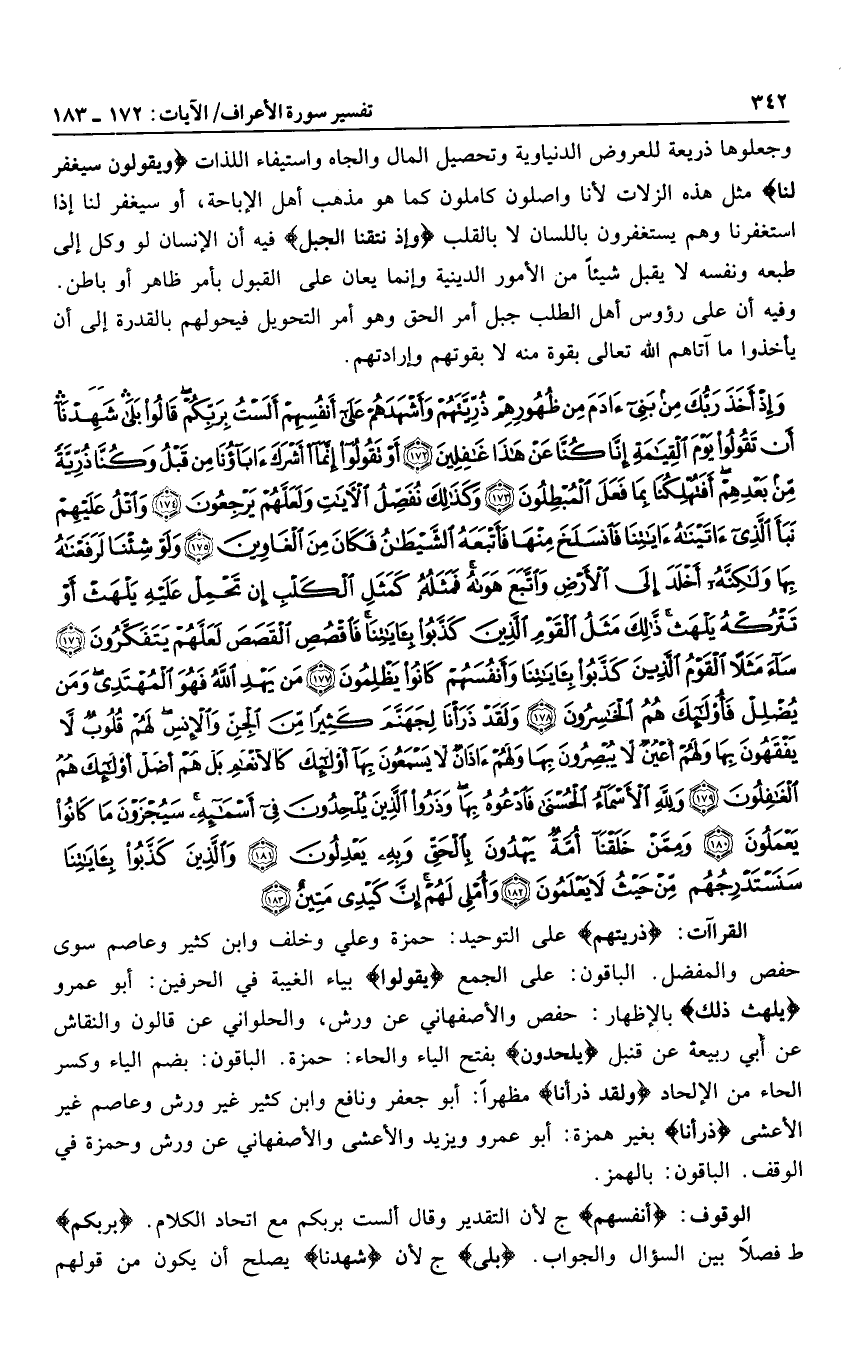 ٣٤٢
تفسير سورة الأعراف/ الآيات: ١٧٢ ـ ١٨٣
وجعلوها ذريعة للعروض الدنياوية وتحصيل المال والجاه واستيفاء اللذات ﴿ويقولون سيغفر
لنا﴾ مثل هذه الزلات لأنا واصلون كاملون كما هو مذهب أهل الإباحة، أو سيغفر لنا إذا
استغفرنا وهم يستغفرون باللسان لا بالقلب ﴿وإذ نتقنا الجبل﴾ فيه أن الإنسان لو وكل إلى
طبعه ونفسه لا يقبل شيئاً من الأمور الدينية وإنما يعان على القبول بأمر ظاهر أو باطن.
وفيه أن على رؤوس أهل الطلب جبل أمر الحق وهو أمر التحويل فيحولهم بالقدرة إلى أن
يأخذوا ما آتاهم الله تعالى بقوة منه لا بقوتهم وإرادتهم.
وَإِذْ أَخَذَ رَبُّكَ مِنْ بَنِىٓ ءَادَمَ مِن ظُهُورِهِمْ ذُرِّيَّتَهُمْ وَأَشْهَدَهُمْ عَلَىٰٓ أَنفُسِهِمْ أَلَسْتُ بِرَبِّكُمْ ۖ قَالُوا۟ بَلَىٰ ۛ شَهِدْنَآ ۛ
أَن تَقُولُوا۟ يَوْمَ ٱلْقِيَـٰمَةِ إِنَّا كُنَّا عَنْ هَـٰذَا غَـٰفِلِينَ ﴿١٧٢﴾ أَوْ نَقُولُوٓا۟ إِنَّمَآ أَشْرَكَ ءَابَآؤُنَا مِن قَبْلُ وَكُنَّا ذُرِّيَّةً
مِّنۢ بَعْدِهِمْ ۖ أَفَتُهْلِكُنَا بِمَا فَعَلَ ٱلْمُبْطِلُونَ ﴿١٧٣﴾ وَكَذَٰلِكَ نُفَصِّلُ ٱلْـَٔايَـٰتِ وَلَعَلَّهُمْ يَرْجِعُونَ ﴿١٧٤﴾ وَٱتْلُ عَلَيْهِمْ
نَبَأَ ٱلَّذِىٓ ءَاتَيْنَـٰهُ ءَايَـٰتِنَا فَٱنسَلَخَ مِنْهَا فَأَتْبَعَهُ ٱلشَّيْطَـٰنُ فَكَانَ مِنَ ٱلْغَاوِينَ ﴿١٧٥﴾ وَلَوْ شِئْنَا لَرَفَعْنَـٰهُ
بِهَا وَلَـٰكِنَّهُۥٓ أَخْلَدَ إِلَى ٱلْأَرْضِ وَٱتَّبَعَ هَوَىٰهُ ۚ فَمَثَلُهُۥ كَمَثَلِ ٱلْكَلْبِ إِن تَحْمِلْ عَلَيْهِ يَلْهَثْ أَوْ
تَتْرُكْهُ يَلْهَث ۚ ذَّٰلِكَ مَثَلُ ٱلْقَوْمِ ٱلَّذِينَ كَذَّبُوا۟ بِـَٔايَـٰتِنَا ۚ فَٱقْصُصِ ٱلْقَصَصَ لَعَلَّهُمْ يَتَفَكَّرُونَ ﴿١٧٦﴾
سَآءَ مَثَلًا ٱلْقَوْمُ ٱلَّذِينَ كَذَّبُوا۟ بِـَٔايَـٰتِنَا وَأَنفُسَهُمْ كَانُوا۟ يَظْلِمُونَ ﴿١٧٧﴾ مَن يَهْدِ ٱللَّهُ فَهُوَ ٱلْمُهْتَدِى ۖ وَمَن
يُضْلِلْ فَأُو۟لَـٰٓئِكَ هُمُ ٱلْخَـٰسِرُونَ ﴿١٧٨﴾ وَلَقَدْ ذَرَأْنَا لِجَهَنَّمَ كَثِيرًا مِّنَ ٱلْجِنِّ وَٱلْإِنسِ ۖ لَهُمْ قُلُوبٌ لَّا
يَفْقَهُونَ بِهَا وَلَهُمْ أَعْيُنٌ لَّا يُبْصِرُونَ بِهَا وَلَهُمْ ءَاذَانٌ لَّا يَسْمَعُونَ بِهَآ ۚ أُو۟لَـٰٓئِكَ كَٱلْأَنْعَـٰمِ بَلْ هُمْ أَضَلُّ ۚ أُو۟لَـٰٓئِكَ هُمُ
ٱلْغَـٰفِلُونَ ﴿١٧٩﴾ وَلِلَّهِ ٱلْأَسْمَآءُ ٱلْحُسْنَىٰ فَٱدْعُوهُ بِهَا ۖ وَذَرُوا۟ ٱلَّذِينَ يُلْحِدُونَ فِىٓ أَسْمَـٰٓئِهِۦ ۚ سَيُجْزَوْنَ مَا كَانُوا۟
يَعْمَلُونَ ﴿١٨٠﴾ وَمِمَّنْ خَلَقْنَآ أُمَّةٌ يَهْدُونَ بِٱلْحَقِّ وَبِهِۦ يَعْدِلُونَ ﴿١٨١﴾ وَٱلَّذِينَ كَذَّبُوا۟ بِـَٔايَـٰتِنَا
سَنَسْتَدْرِجُهُم مِّنْ حَيْثُ لَا يَعْلَمُونَ ﴿١٨٢﴾ وَأُمْلِى لَهُمْ ۚ إِنَّ كَيْدِى مَتِينٌ ﴿١٨٣﴾
القراآت: ﴿ذريتهم﴾ على التوحيد: حمزة وعلي وخلف وابن كثير وعاصم سوى
حفص والمفضل. الباقون: على الجمع ﴿يقولوا﴾ بياء الغيبة في الحرفين: أبو عمرو
﴿يلهث ذلك﴾ بالإظهار: حفص والأصفهاني عن ورش، والحلواني عن قالون والنقاش
عن أبي ربيعة عن قنبل ﴿يلحدون﴾ بفتح الياء والحاء: حمزة. الباقون: بضم الياء وكسر
الحاء من الإلحاد ﴿ولقد ذرأنا﴾ مظهراً: أبو جعفر ونافع وابن كثير غير ورش وعاصم غير
الأعشى ﴿ذرأنا﴾ بغير همزة: أبو عمرو ويزيد والأعشى والأصفهاني عن ورش وحمزة في
الوقف. الباقون: بالهمز.
الوقوف: ﴿أنفسهم﴾ ج لأن التقدير وقال ألست بربكم مع اتحاد الكلام. ﴿بربكم﴾
ط فصلاً بين السؤال والجواب. ﴿بلى﴾ ج لأن ﴿شهدنا﴾ يصلح أن يكون من قولهم